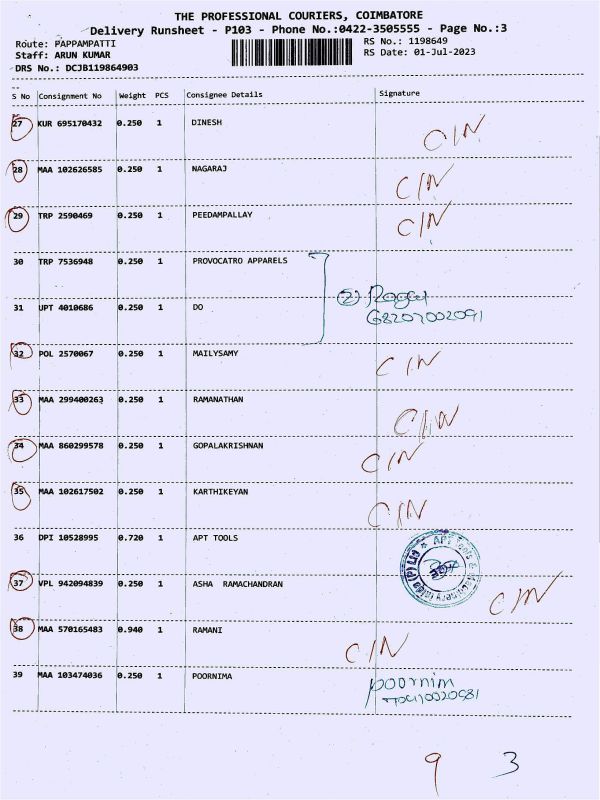 THE PROFESSIONAL COURIERS, COIMBATORE
Delivery Runsheet - P103 - Phone No.:0422-3505555 - Page No.:3
Route: PAPPAMPATTI RS No.: 1198649
Staff: ARUN KUMAR RS Date: 01-Jul-2023
DRS No.: DCJB119864903
S No Consignment No Weight PCS Consignee Details Signature
27 KUR 695170432 0.250 1 DINESH C/N
28 MAA 102626585 0.250 1 NAGARAJ C/N
29 TRP 2590469 0.250 1 PEEDAMPALLAY C/N
30 TRP 7536948 0.250 1 PROVOCATRO APPARELS
31 UPT 4010686 0.250 1 DO
32 POL 2570067 0.250 1 MAILYSAMY C/N
33 MAA 299400263 0.250 1 RAMANATHAN C/N
34 MAA 860299578 0.250 1 GOPALAKRISHNAN C/N
35 MAA 102617502 0.250 1 KARTHIKEYAN C/N
36 DPI 10528995 0.720 1 APT TOOLS
37 VPL 942094839 0.250 1 ASHA RAMACHANDRAN C/N
38 MAA 570165483 0.940 1 RAMANI C/N
39 MAA 103474036 0.250 1 POORNIMA poornim
9 3